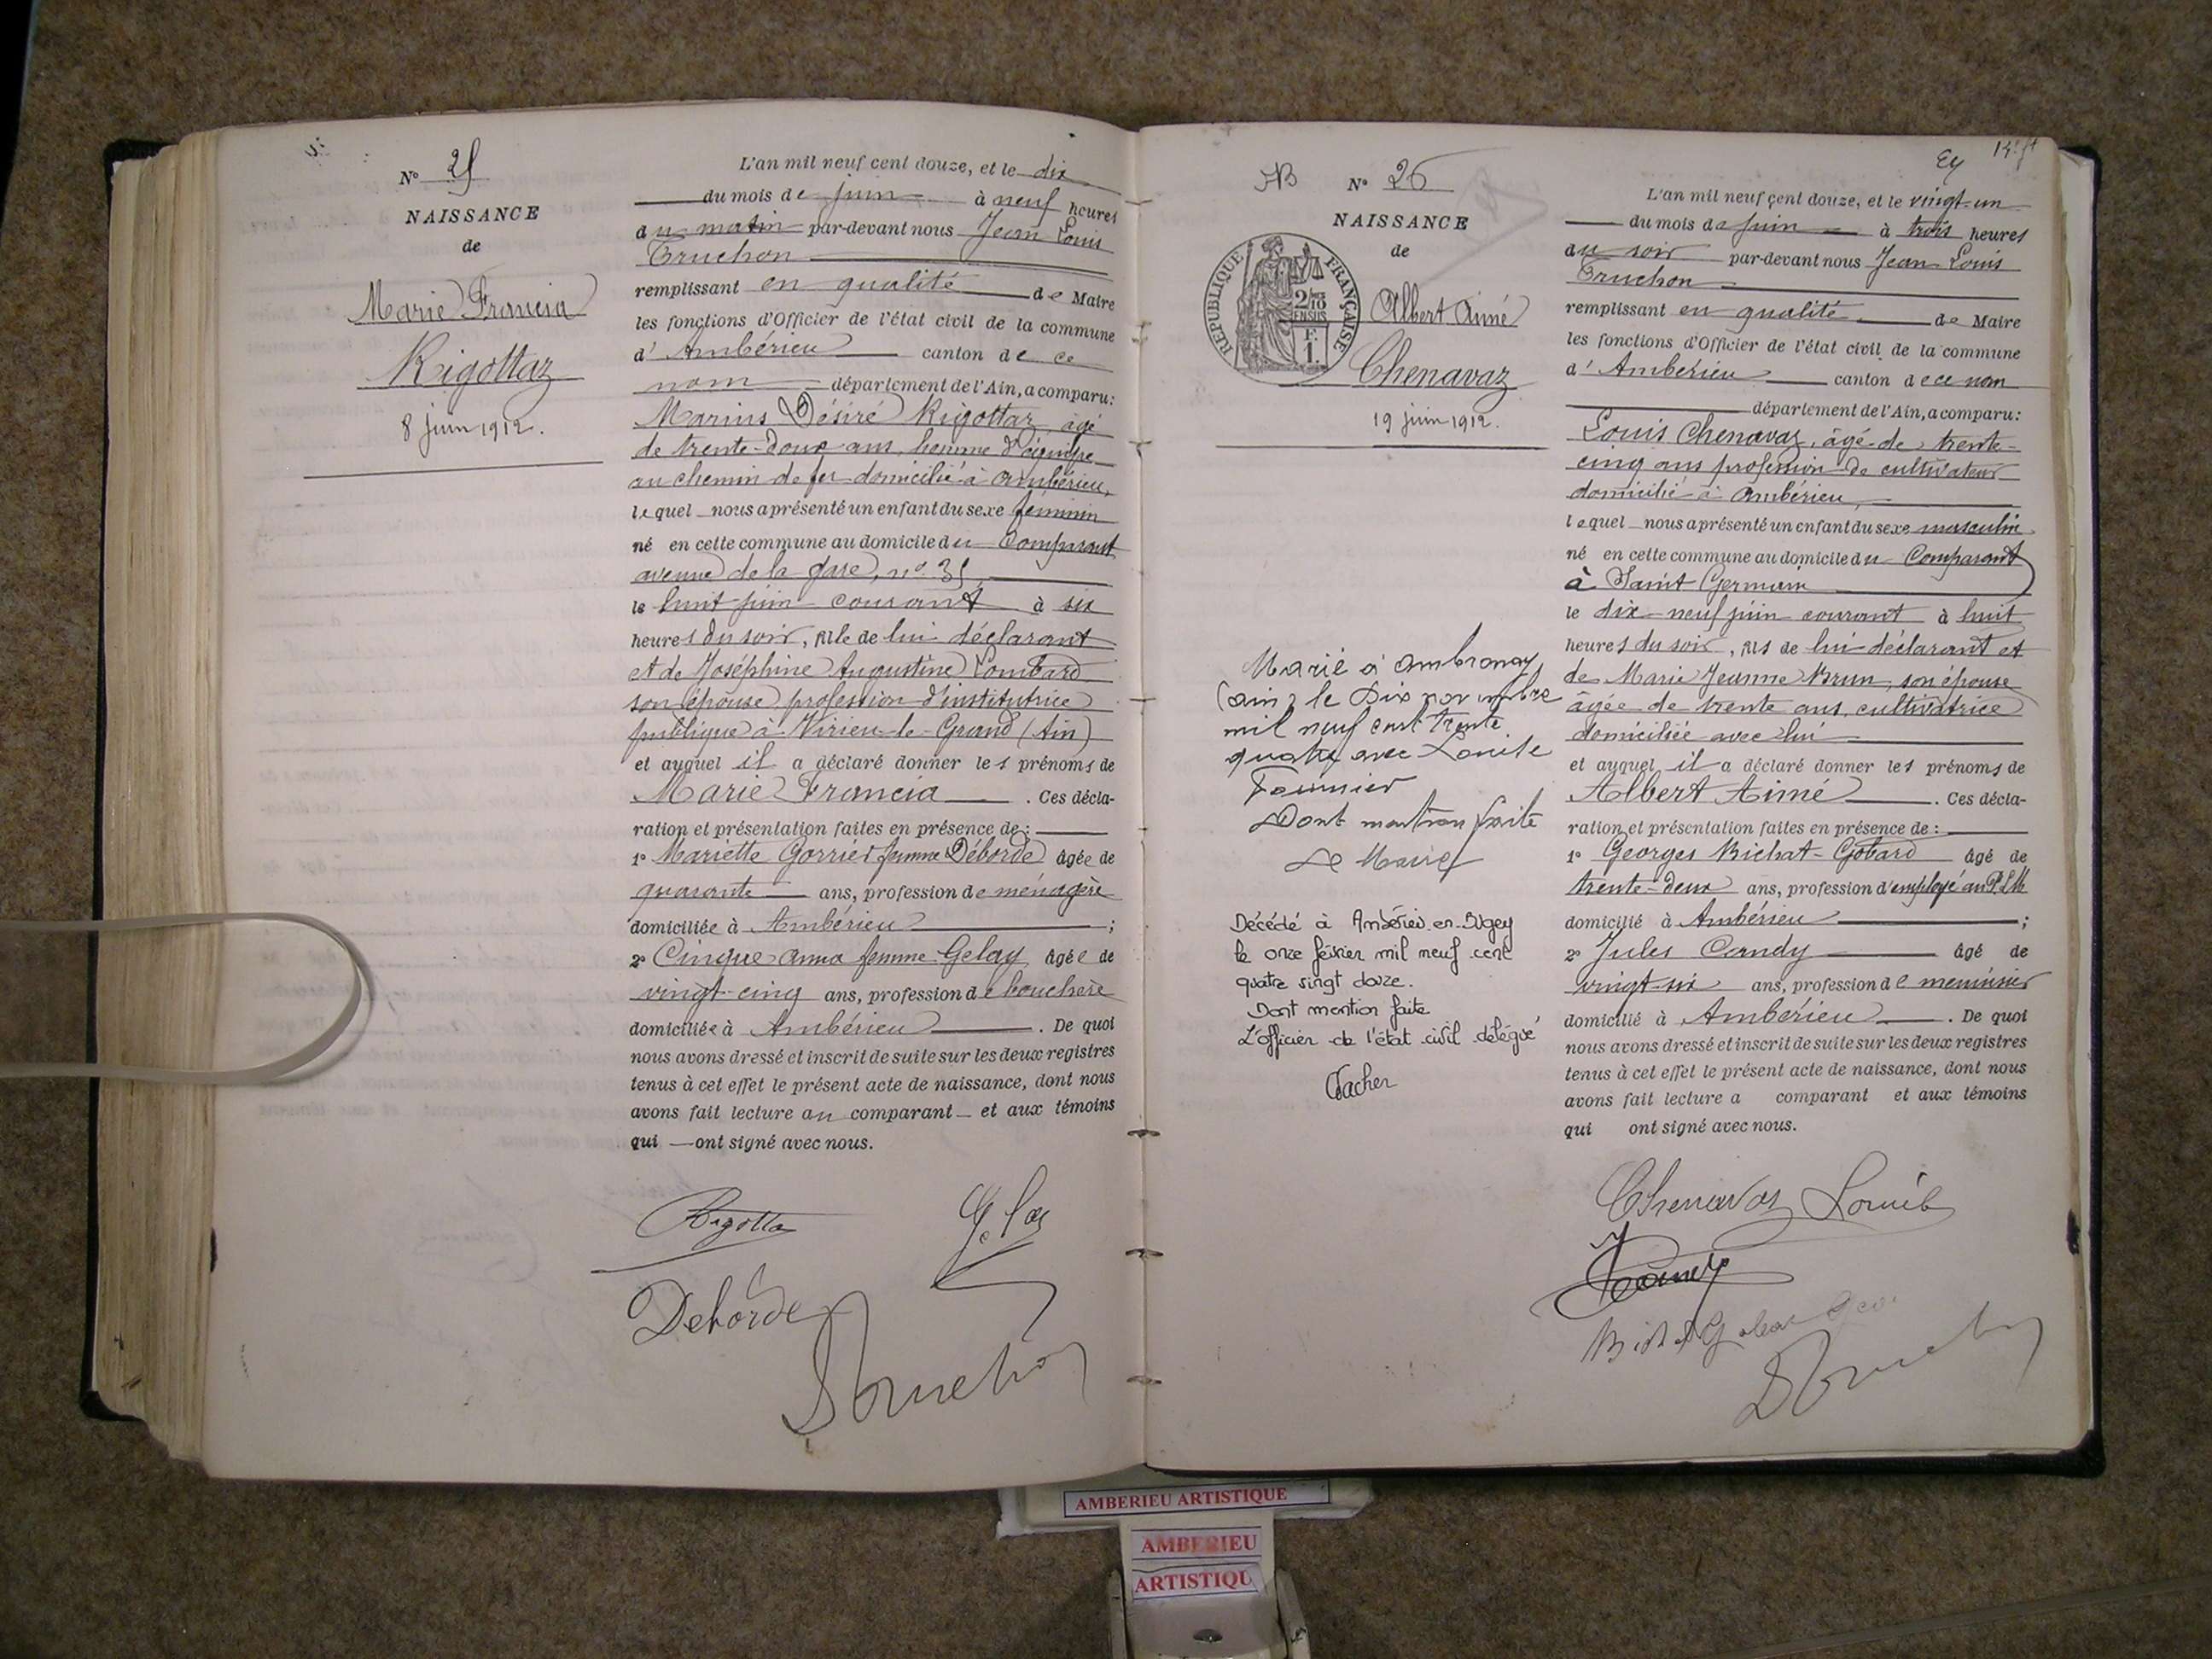 N° 25
NAISSANCE
de
Marie Francia
Rigottaz
8 juin 1912.
L'an mil neuf cent douze, et le dix
du mois de juin à neuf heures
du matin par-devant nous Jean Louis
Truchon
remplissant en qualité de Maire
les fonctions d'Officier de l'état civil de la commune
d'Ambérieu canton de ce
nom département de l'Ain, a comparu:
Marius Désiré Rigottaz, âgé
de trente-deux ans, homme d'équipe
au chemin de fer domicilié à Ambérieu,
lequel nous a présenté un enfant du sexe féminin
né en cette commune au domicile du Comparant
avenue de la gare, n°
le huit juin courant à six
heures du soir, fille de lui déclarant
et de Joséphine Augustine Lombard
son épouse profession d'institutrice
publique à Virieu-le-Grand (Ain)
et auquel il a déclaré donner les prénoms de
Marie Francia. Ces décla-
ration et présentation faites en présence de:
1° Mariette Gorrier femme Déborde âgée de
quarante ans, profession de ménagère
domiciliée à Ambérieu;
2° Cinque Anna femme Gelay âgée de
vingt-cinq ans, profession de bouchère
domiciliée à Ambérieu. De quoi
nous avons dressé et inscrit de suite sur les deux registres
tenus à cet effet le présent acte de naissance, dont nous
avons fait lecture au comparant et aux témoins
qui ont signé avec nous.
Rigotta
Deborde
Truchon
N° 26
NAISSANCE
de
RÉPUBLIQUE FRANÇAISE
Albert Aimé
Chenavaz
19 juin 1912.
Marié à Ambronay
(Ain) le Dix novembre
mil neuf cent trente
quatre avec Louise
Dont mention faite
Le Maire
Décédé à Ambérieu-en-Bugey
le onze février mil neuf cent
quatre vingt douze.
Dont mention faite
L'officier de l'état civil délégué
L'an mil neuf cent douze, et le vingt-un
du mois de juin à trois heures
du soir par-devant nous Jean Louis
Truchon
remplissant en qualité de Maire
les fonctions d'Officier de l'état civil de la commune
d'Ambérieu canton de ce nom
département de l'Ain, a comparu:
Louis Chenavaz, âgé de trente-
cinq ans profession de cultivateur
domicilié à Ambérieu,
lequel nous a présenté un enfant du sexe masculin
né en cette commune au domicile du Comparant
à Saint Germain
le dix-neuf juin courant à huit
heures du soir, fils de lui déclarant et
de Marie Jeanne Brun, son épouse
âgée de trente ans, cultivatrice
domiciliée avec lui
et auquel il a déclaré donner les prénoms de
Albert Aimé. Ces décla-
ration et présentation faites en présence de:
1° Georges Bichat-Gobard âgé de
trente-deux ans, profession d'employé au P.L.M.
domicilié à Ambérieu;
2° Jules Candy âgé de
vingt-six ans, profession de menuisier
domicilié à Ambérieu. De quoi
nous avons dressé et inscrit de suite sur les deux registres
tenus à cet effet le présent acte de naissance, dont nous
avons fait lecture a comparant et aux témoins
qui ont signé avec nous.
Chenavaz Louis
Truchon
AMBERIEU ARTISTIQUE
AMBERIEU
ARTISTIQU